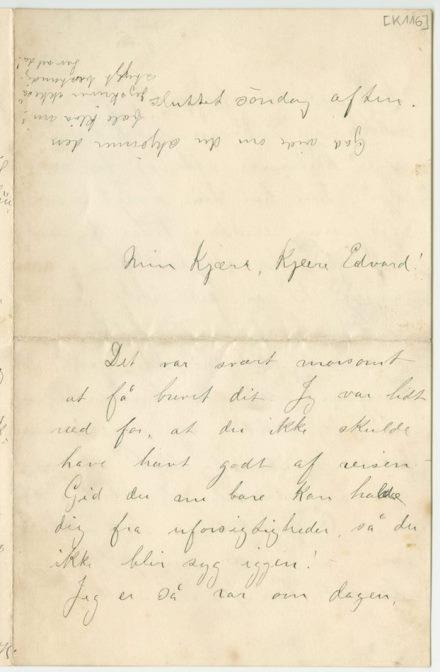 [K116]
sluttet søndag aften.
Gad vide om du skjønner den
Min Kjære, Kjære Edvard!
Det var svært morsomt
at få brevet dit. Jeg var lidt
ræd for, at du ikke skulde
have havt godt af reisen.
Gid du nu bare kan holde
dig fra uforsigtigheder, så du
ikke blir syg iggen!
Jeg er så rar om dagen,